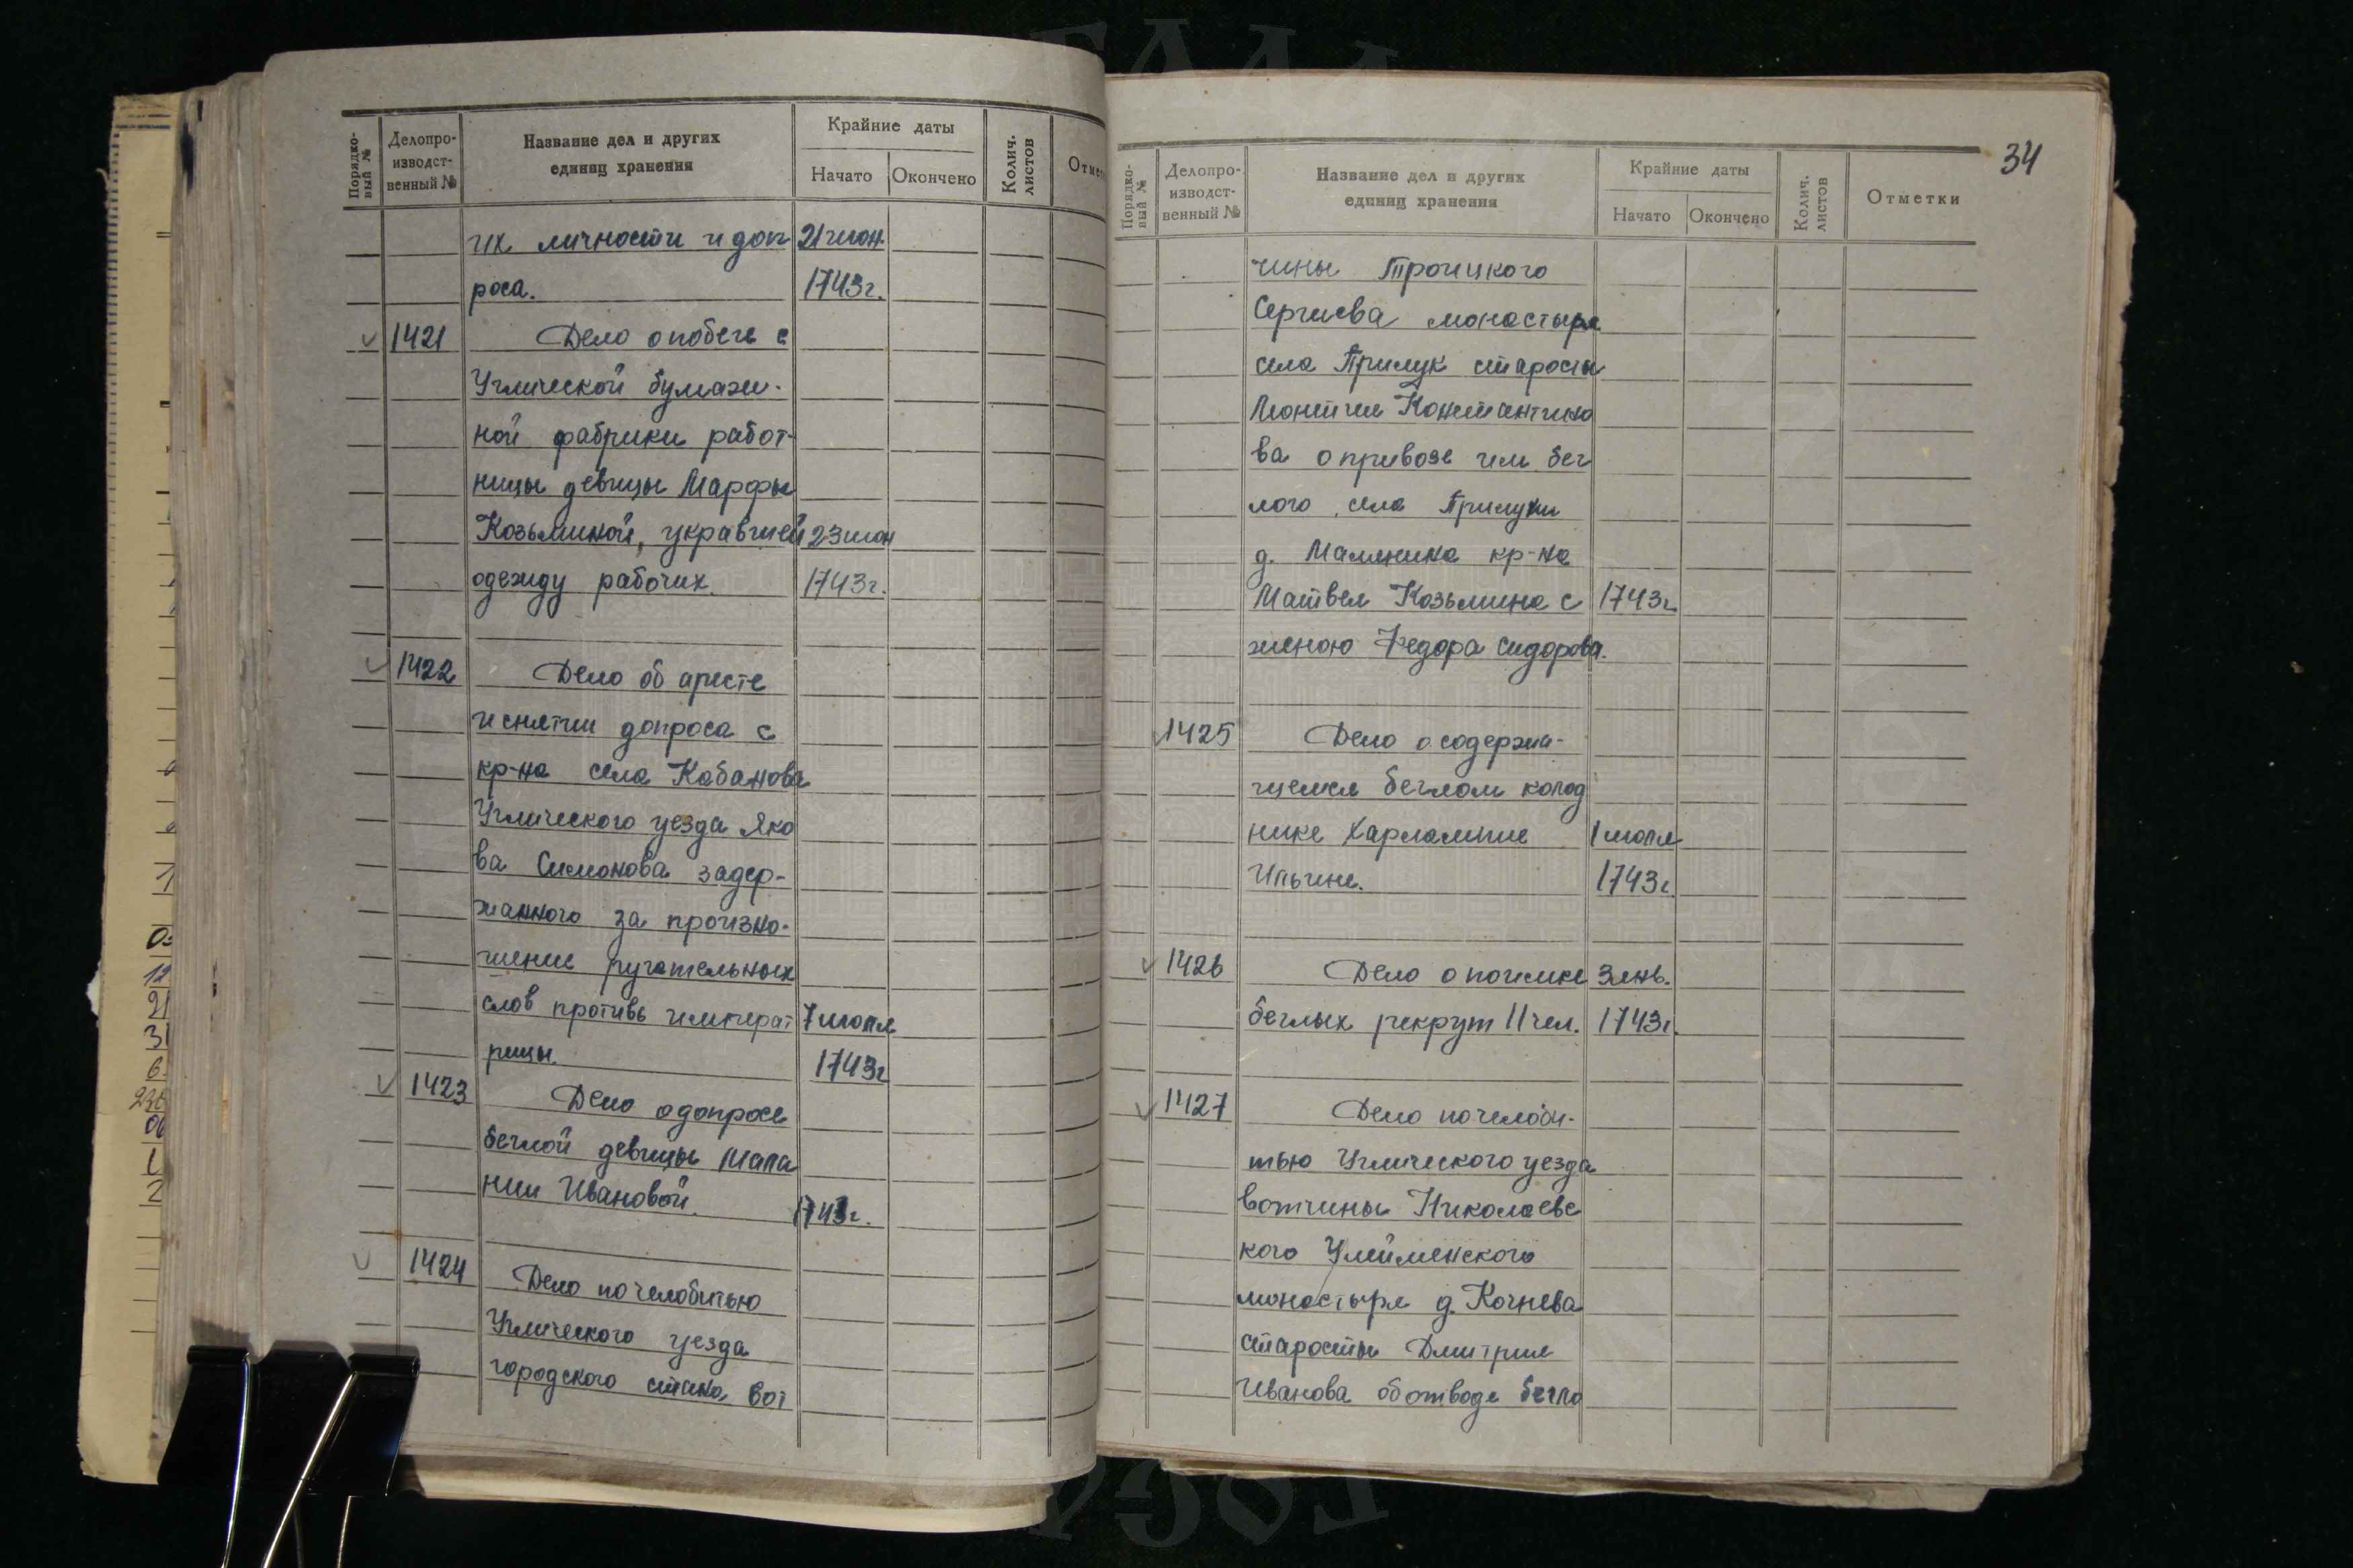 Порядко-
вый №
Делопро-
изводст-
венный №
Название дел и других
единиц хранения
Крайние даты
Начато
Окончено
Колич.
листов
Отмет
их личности и доп 21 июн.
роса. 1743г.
1421 Дело о побеге с
Углической бумаж-
ной фабрики работ-
ницы девицы Марфы
Козьминой, укравшей 23 июн
одежду рабочих. 1743г.
1422 Дело об аресте
и снятии допроса с
кр-на села Кабанова
Углического уезда Яко
ва Симонова задер-
жанного за произно-
шение ругательных
слов противъ императ 7 июля
рицы. 1743г
1423 Дело о допросе
беглой девицы Мала
нии Ивановой. 1743г.
1424 Дело по челобитью
Углического уезда
городского стана вот
34
Порядко-
вый №
Делопро-
изводст-
венный №
Название дел и других
единиц хранения
Крайние даты
Начато
Окончено
Колич.
листов
Отметки
чины Троицкого
Сергиева монастыря
села Прилук старосты
Константино
ва о привозе им бег
лого села Прилуки
д. Малинина кр-на
Матвея Козьмина с 1743г
женою Федора Сидорова.
1425 Дело о содержа-
щемся беглом колод
нике Харлампие 1 июля
Ильине. 1743г.
1426 Дело о поимке 3 янв.
беглых рекрут 11 чел. 1743г.
1427 Дело по челоби-
тью Углического уезда
вотчины Николаевс
кого Улейменского
монастыря д. Кочнева
старосты Дмитрия
Иванова об отводе бегло